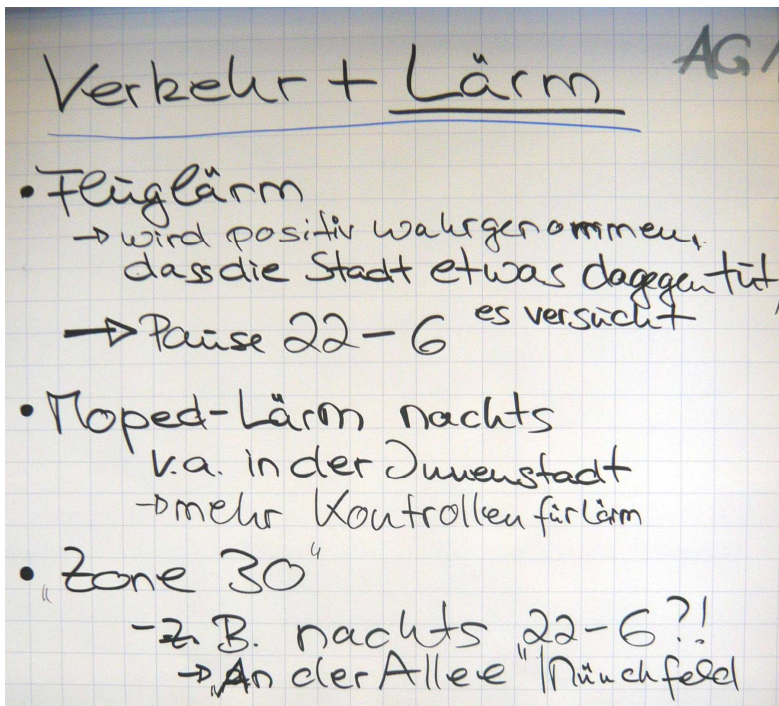 AG 1
Verkehr + Lärm
• Fluglärm
→ wird positiv wahrgenommen,
dass die Stadt etwas dagegen tut,
es versucht
→ Pause 22-6
• Moped-Lärm nachts
v.a. in der Innenstadt
→ mehr Kontrollen für Lärm
• „Zone 30“
- z.B. nachts 22-6?!
→ „An der Allee“ Münchfeld